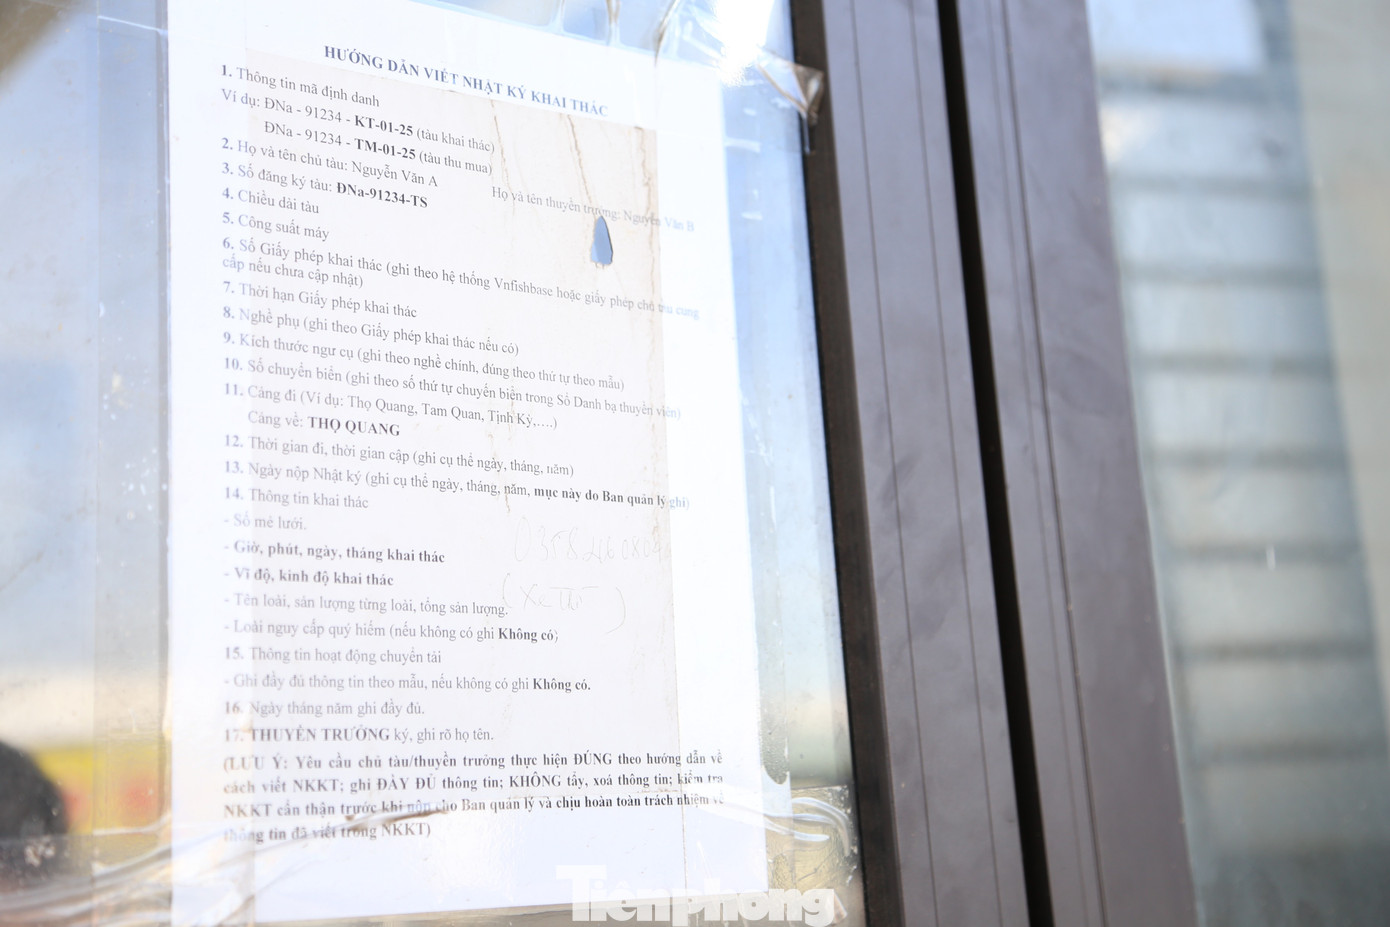 HƯỚNG DẪN VIẾT NHẬT KÝ KHAI THÁC
1. Thông tin mã định danh
Ví dụ: ĐNa - 91234 - KT-01-25 (tàu khai thác)
ĐNa - 91234 - TM-01-25 (tàu thu mua)
2. Họ và tên chủ tàu: Nguyễn Văn A Họ và tên thuyền trưởng: Nguyễn Văn B
3. Số đăng ký tàu: ĐNa-91234-TS
4. Chiều dài tàu
5. Công suất máy
6. Số Giấy phép khai thác (ghi theo hệ thống Vnfishbase hoặc giấy phép chủ tàu cung
cấp nếu chưa cập nhật)
7. Thời hạn Giấy phép khai thác
8. Nghề phụ (ghi theo Giấy phép khai thác nếu có)
9. Kích thước ngư cụ (ghi theo nghề chính, đúng theo thứ tự theo mẫu)
10. Số chuyến biển (ghi theo số thứ tự chuyến biển trong Sổ Danh bạ thuyền viên)
11. Cảng đi (Ví dụ: Thọ Quang, Tam Quan, Tịnh Kỳ,....)
Cảng về: THỌ QUANG
12. Thời gian đi, thời gian cập (ghi cụ thể ngày, tháng, năm)
13. Ngày nộp Nhật ký (ghi cụ thể ngày, tháng, năm, mục này do Ban quản lý ghi)
14. Thông tin khai thác
- Số mẻ lưới.
- Giờ, phút, ngày, tháng khai thác
- Vĩ độ, kinh độ khai thác
- Tên loài, sản lượng từng loài, tổng sản lượng.
- Loài nguy cấp quý hiếm (nếu không có ghi Không có)
15. Thông tin hoạt động chuyển tải
- Ghi đầy đủ thông tin theo mẫu, nếu không có ghi Không có.
16. Ngày tháng năm ghi đầy đủ.
17. THUYỀN TRƯỞNG ký, ghi rõ họ tên.
(LƯU Ý: Yêu cầu chủ tàu/thuyền trưởng thực hiện ĐÚNG theo hướng dẫn về
cách viết NKKT; ghi ĐẦY ĐỦ thông tin; KHÔNG tẩy, xoá thông tin; kiểm tra
NKKT cẩn thận trước khi nộp cho Ban quản lý và chịu hoàn toàn trách nhiệm về
thông tin đã viết trong NKKT)
Tiềnphong